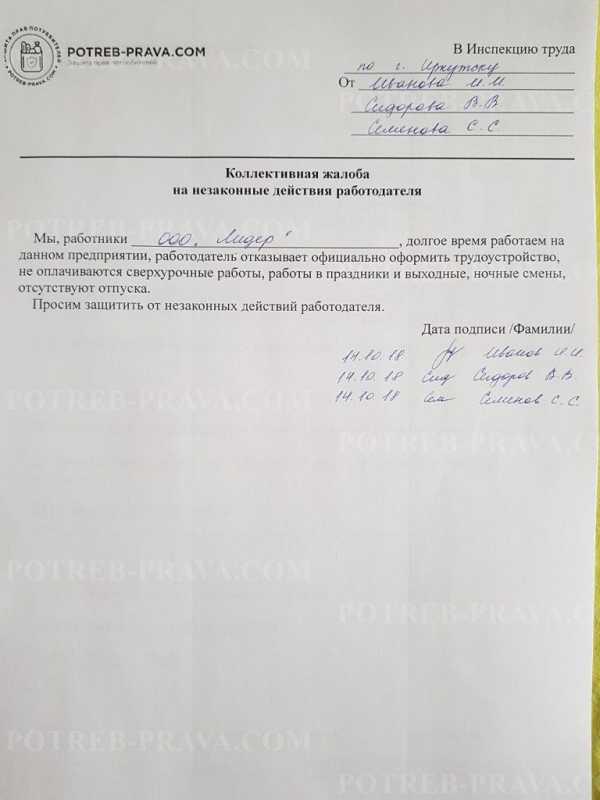 ЗАЩИТА ПРАВ ПОТРЕБИТЕЛЕЙ
POTREB-PRAVA.COM
POTREB-PRAVA.COM
Защита прав потребителей
В Инспекцию труда
по г. Иркутску
От Иванова И.И.
Сидорова В.В.
Семенова С.С.
Коллективная жалоба
на незаконные действия работодателя
Мы, работники ООО "Лидер", долгое время работаем на
данном предприятии, работодатель отказывает официально оформить трудоустройство,
не оплачиваются сверхурочные работы, работы в праздники и выходные, ночные смены,
отсутствуют отпуска.
Просим защитить от незаконных действий работодателя.
Дата подписи /Фамилии/
14.10.18 Иванов И.И.
14.10.18 Сид Сидоров В.В.
14.10.18 Сем Семенов С.С.
POTREB-PRAVA.COM
POTREB-PRAVA.COM
POTREB-PRAVA.COM
POTREB-PRAVA.COM
POTREB-PRAVA.COM
POTREB-PRAVA.COM
POTREB-PRAVA.COM
POTREB-PRAVA.COM
POTREB-PRAVA.COM
POTREB-PRAVA.COM